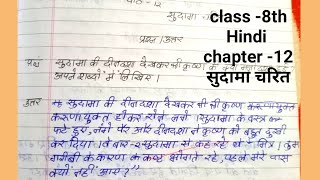 class -8th
Hindi
chapter -12
सुदामा चरित
पाठ - 12
प्रश्न / उत्तर
प्रश्न सुदामा की दीनदशा देखकर श्री कृष्ण की क्या मनोदशा हुई
अपने शब्दों में लिखिए।
उत्तर सुदामा की दीनदशा देखकर श्री कृष्ण
करुणायुक्त होकर रोने लगे। सुदामा के वस्त्र
फटे हुए, नंगे पैर और दीनदशा ने कृष्ण को बहुत दुखी
कर दिया। वे बार-2 सुदामा से कह रहे थे - "मित्र। तुम
गरीबी के कारण के कष्ट भोगते रहे, पहले मेरे पास
क्यों नहीं आए?"